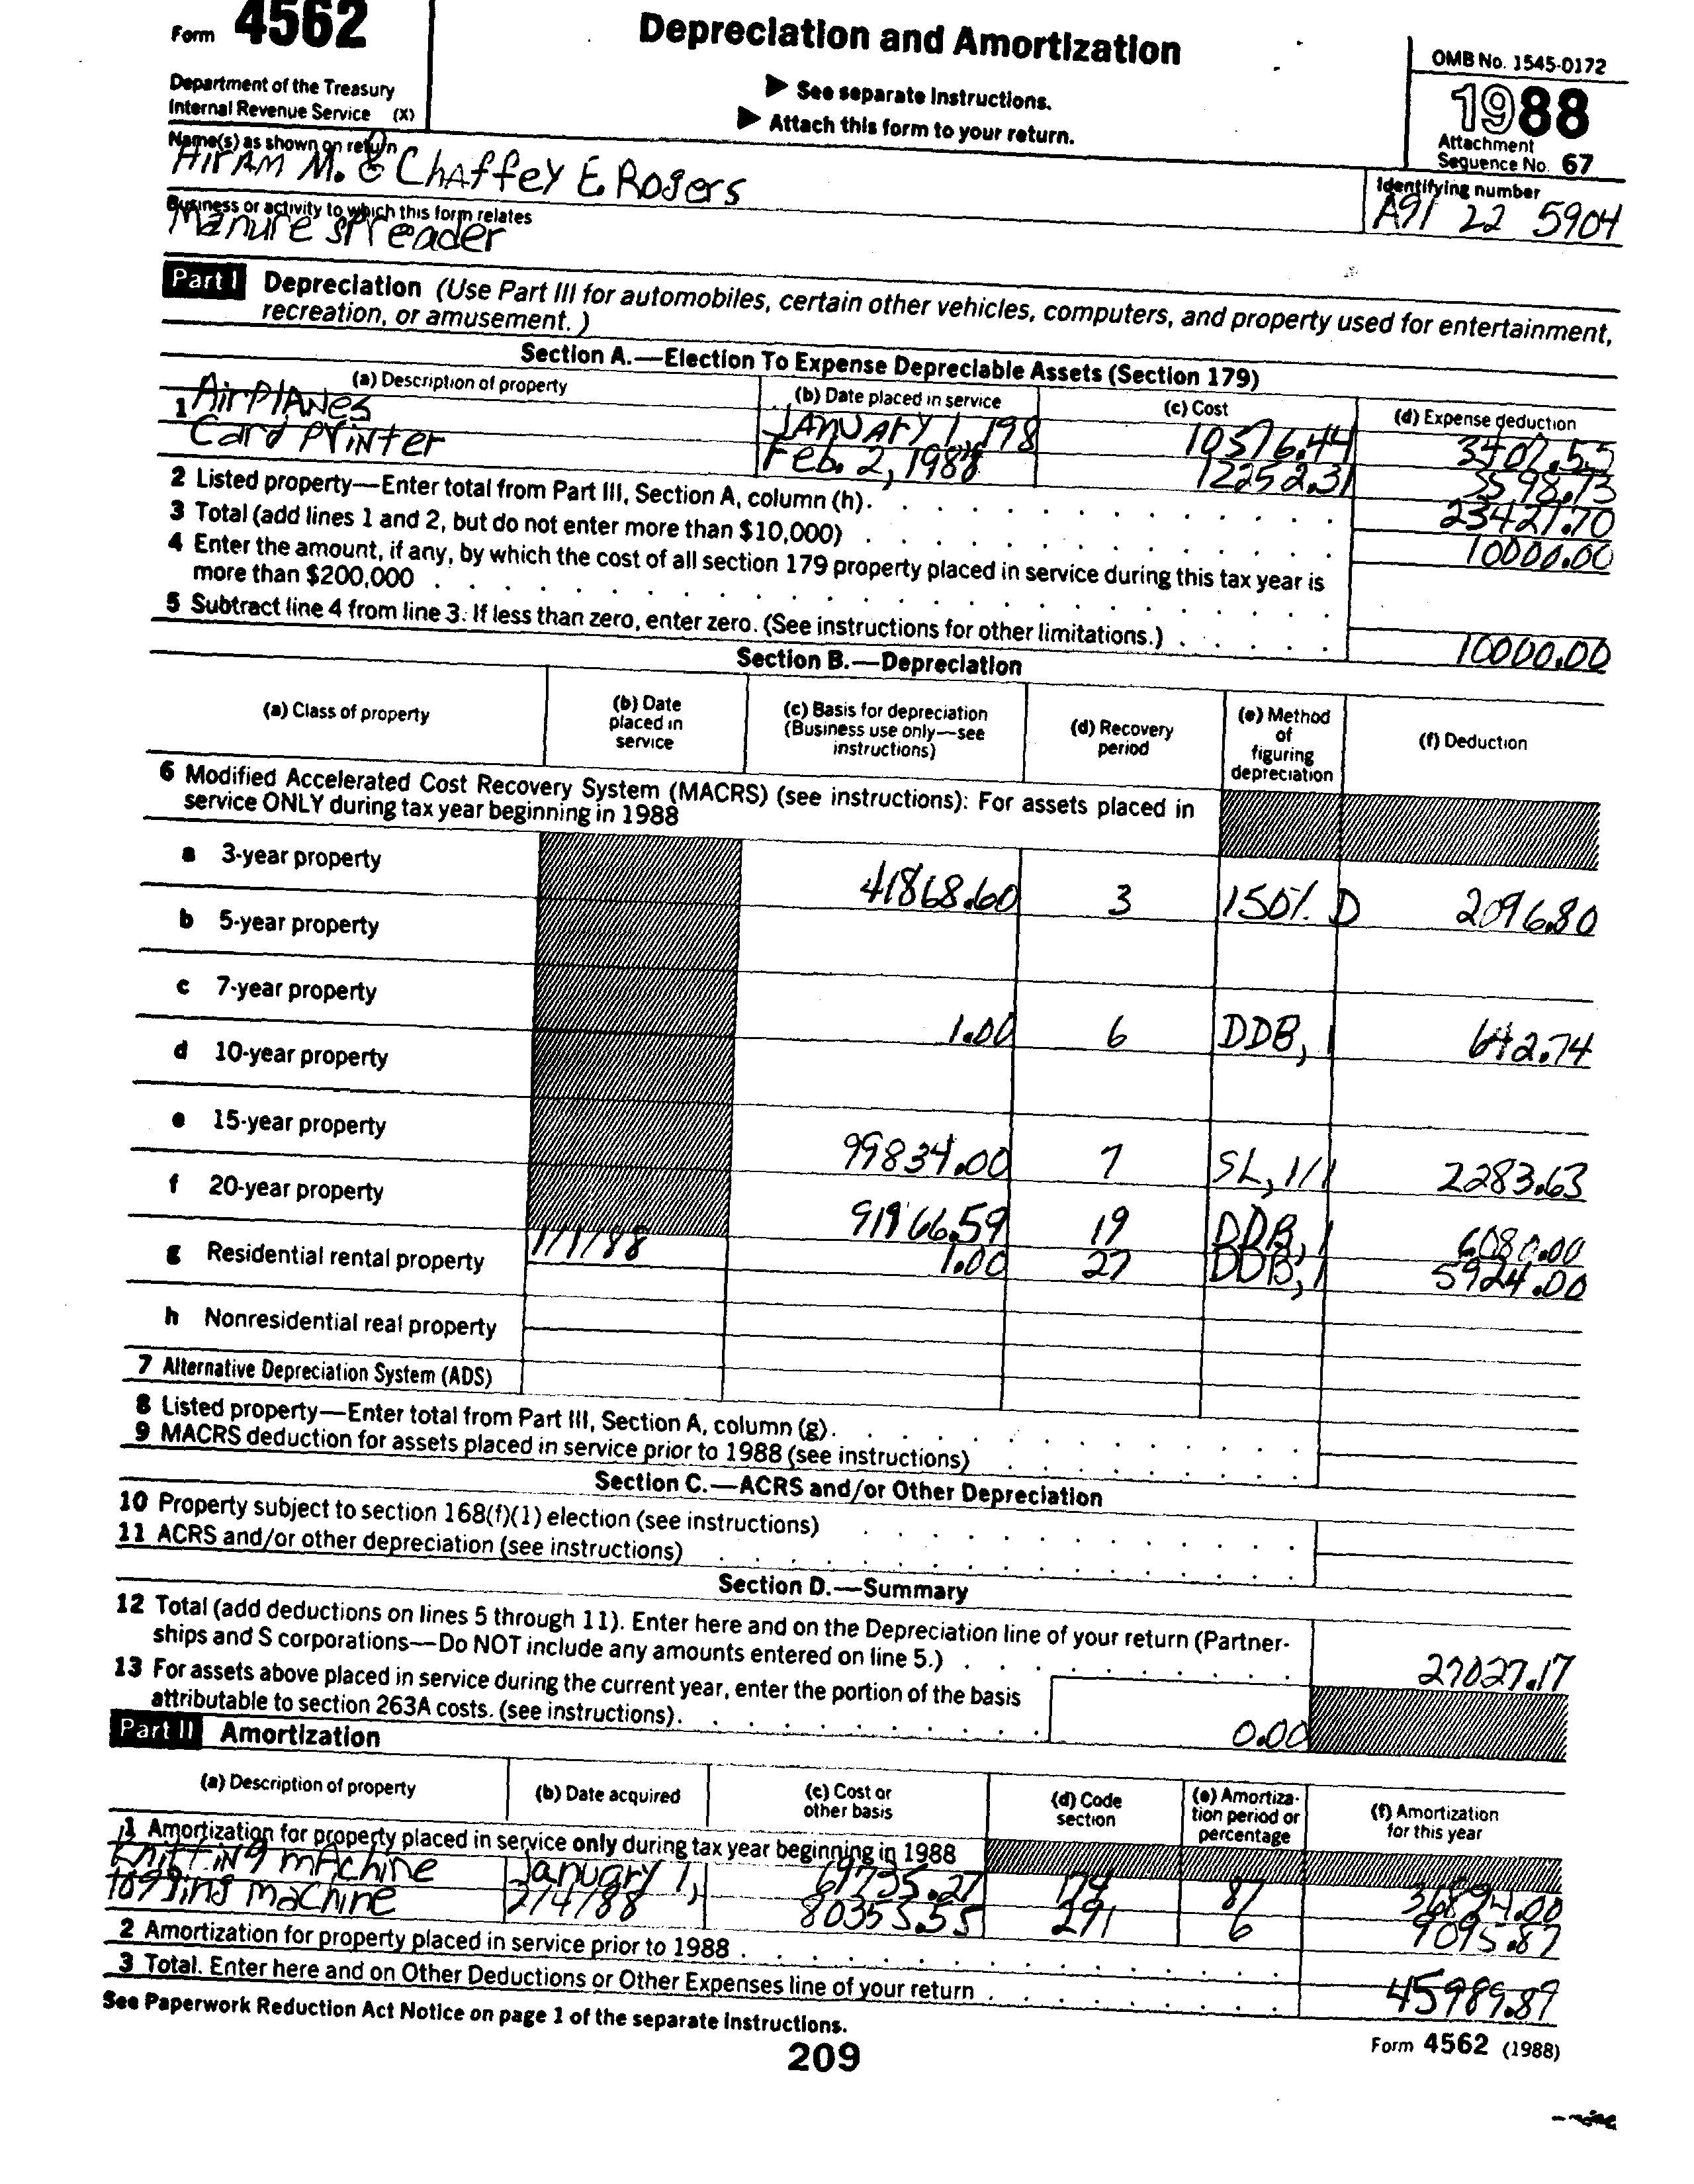 Form 4562
Department of the Treasury
Internal Revenue Service (X)
Depreciation and Amortization
▶ See separate Instructions.
▶ Attach this form to your return.
OMB No. 1545-0172
1988
Attachment
Sequence No. 67
Name(s) as shown on return
HirAM M. & ChAffey E. Rogers
Identifying number
A91 22 5904
Business or activity to which this form relates
Manure spreader
Part I Depreciation (Use Part III for automobiles, certain other vehicles, computers, and property used for entertainment,
recreation, or amusement. )
Section A.—Election To Expense Depreciable Assets (Section 179)
(a) Description of property (b) Date placed in service (c) Cost (d) Expense deduction
1 AirPlANes JANUAry 1, 198 10576.44 3407.55
Card Printer Feb. 2, 1988 12252.31 3598.73
2 Listed property—Enter total from Part III, Section A, column (h). 23421.70
3 Total (add lines 1 and 2, but do not enter more than $10,000) 10000.00
4 Enter the amount, if any, by which the cost of all section 179 property placed in service during this tax year is
more than $200,000
5 Subtract line 4 from line 3. If less than zero, enter zero. (See instructions for other limitations.) 10000.00
Section B.—Depreciation
(a) Class of property
(b) Date
placed in
service
(c) Basis for depreciation
(Business use only—see
instructions)
(d) Recovery
period
(e) Method
of
figuring
depreciation
(f) Deduction
6 Modified Accelerated Cost Recovery System (MACRS) (see instructions): For assets placed in
service ONLY during tax year beginning in 1988
a 3-year property 41868.60 3 150% D 2096.80
b 5-year property
c 7-year property 1.00 6 DDB, 1 642.74
d 10-year property
e 15-year property 99834.00 7 SL, 1/1 2283.63
f 20-year property 91966.59 19 DDB, 1 6080.00
g Residential rental property 1/1/88 1.00 27 DDB, 1 5924.00
h Nonresidential real property
7 Alternative Depreciation System (ADS)
8 Listed property—Enter total from Part III, Section A, column (g).
9 MACRS deduction for assets placed in service prior to 1988 (see instructions)
Section C.—ACRS and/or Other Depreciation
10 Property subject to section 168(f)(1) election (see instructions)
11 ACRS and/or other depreciation (see instructions)
Section D.—Summary
12 Total (add deductions on lines 5 through 11). Enter here and on the Depreciation line of your return (Partner-
ships and S corporations—Do NOT include any amounts entered on line 5.) 27027.17
13 For assets above placed in service during the current year, enter the portion of the basis
attributable to section 263A costs. (see instructions). 0.00
Part II Amortization
(a) Description of property
(b) Date acquired
(c) Cost or
other basis
(d) Code
section
(e) Amortiza-
tion period or
percentage
(f) Amortization
for this year
1 Amortization for property placed in service only during tax year beginning in 1988
KnittiNg mAchine January 1, 69735.27 174 8% 36894.00
togging machine 2/4/88 80353.55 291 6 9095.87
2 Amortization for property placed in service prior to 1988
3 Total. Enter here and on Other Deductions or Other Expenses line of your return 45989.87
See Paperwork Reduction Act Notice on page 1 of the separate instructions.
209
Form 4562 (1988)